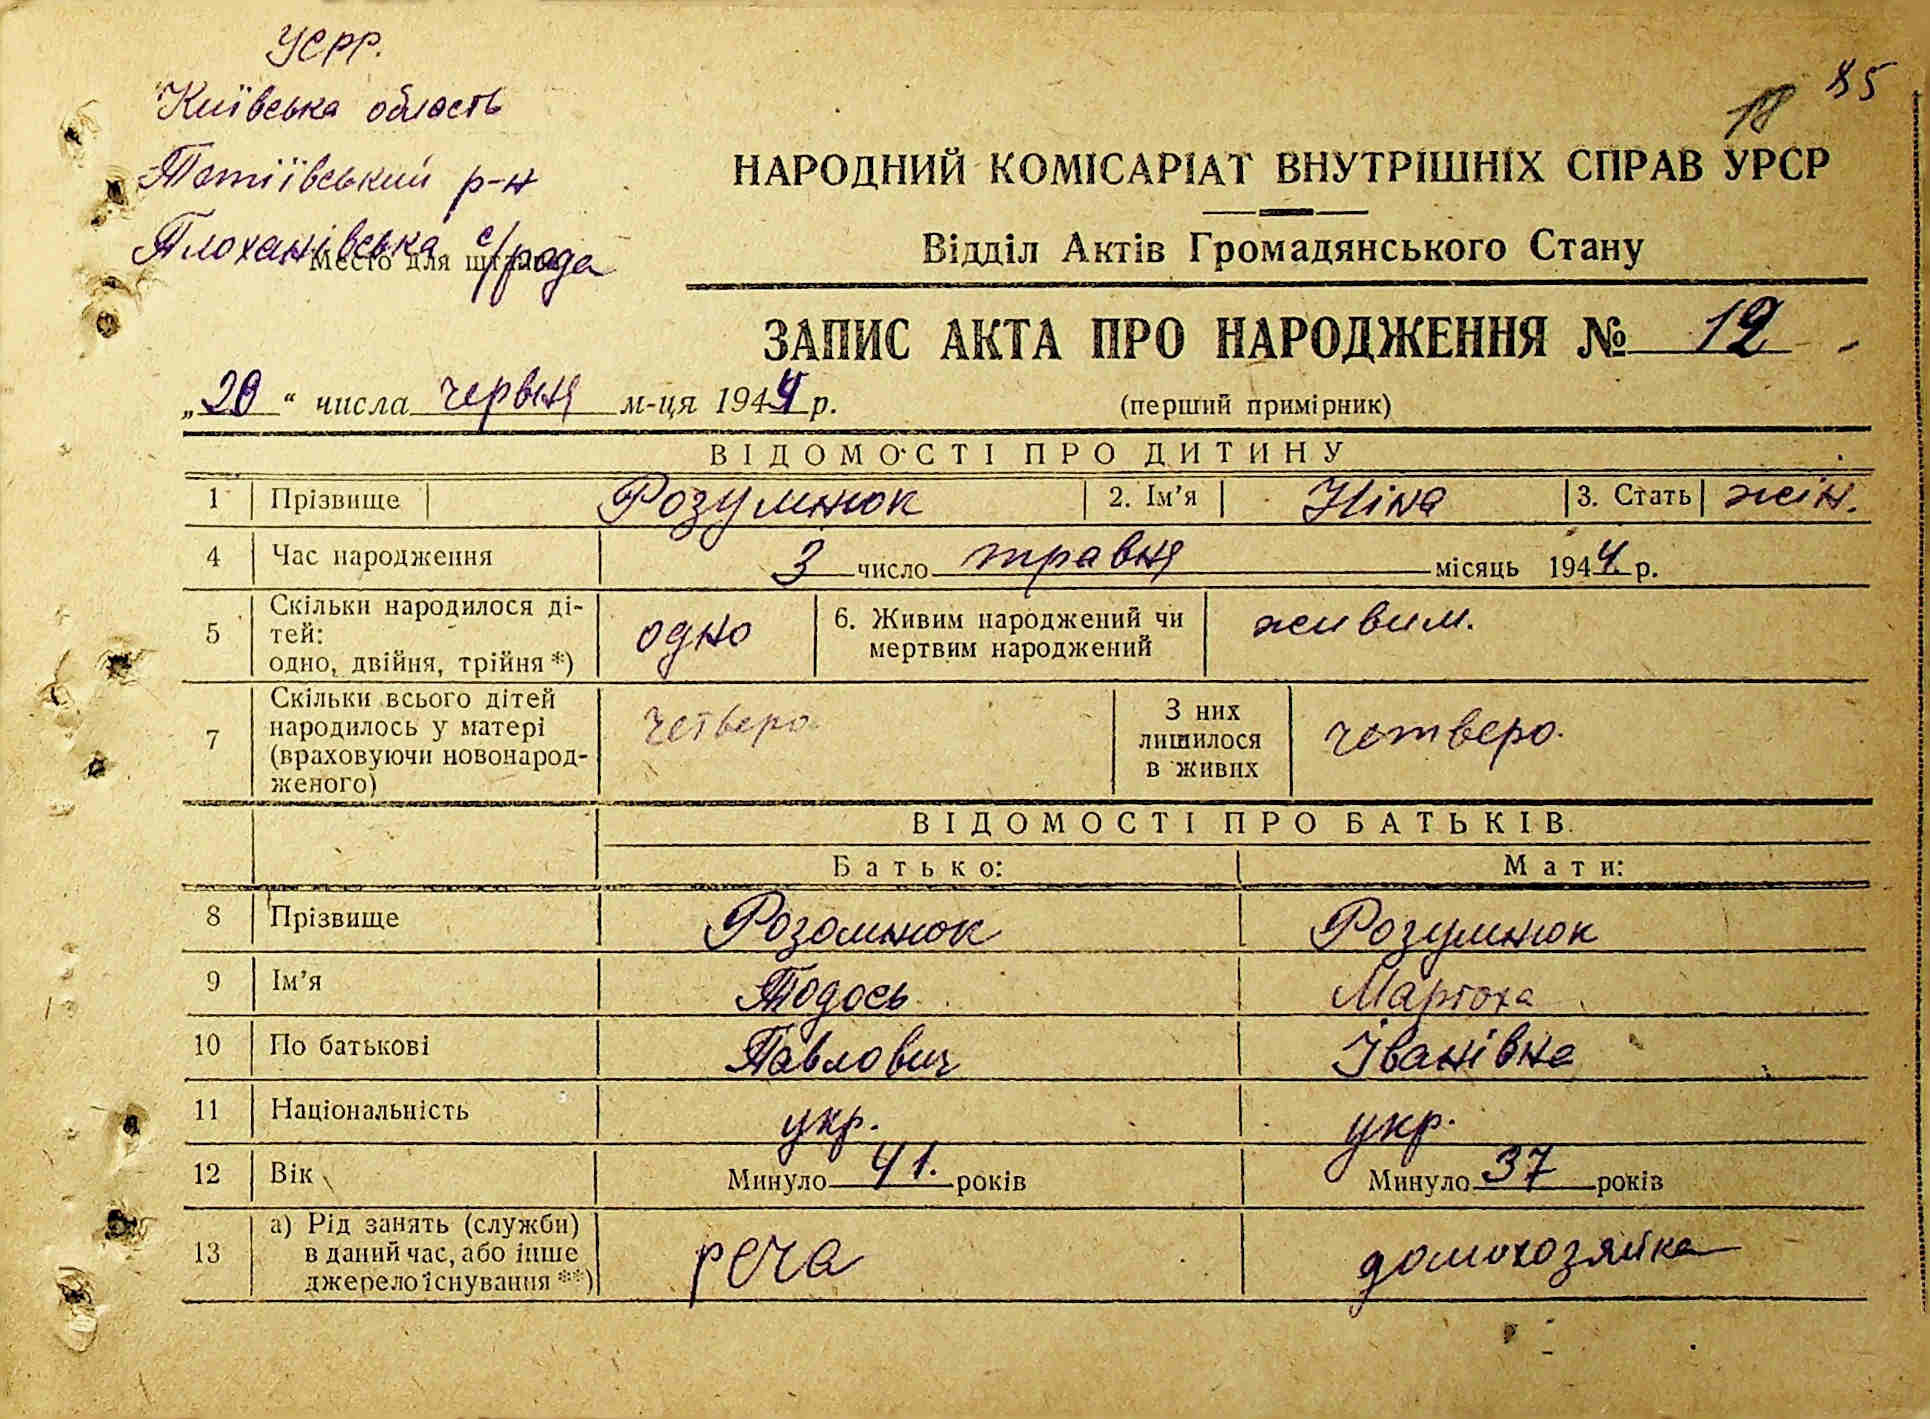 УСРР.
Київська область
85
18
Тетіївський р-н
НАРОДНИЙ КОМІСАРІАТ ВНУТРІШНІХ СПРАВ УРСР
Плоханівська с/рада
Место для штампа
Відділ Актів Громадянського Стану
ЗАПИС АКТА ПРО НАРОДЖЕННЯ № 12
„20“ числа червня м-ця 1944 р.
(перший примірник)
ВІДОМОСТІ ПРО ДИТИНУ
1 Прізвище Розумнюк 2. Ім'я Ніна 3. Стать жін.
4 Час народження 3 число травня місяць 1944 р.
5 Скільки народилося ді-
тей:
одно, двійня, трійня *) одно 6. Живим народжений чи
мертвим народжений живим.
7 Скільки всього дітей
народилось у матері
(враховуючи новонарод-
женого) четверо З них
лишилося
в живих четверо.
ВІДОМОСТІ ПРО БАТЬКІВ
Батько: Мати:
8 Прізвище Розомнюк Розумнюк
9 Ім'я Тодось Мартоха
10 По батькові Павлович Іванівна
11 Національність укр. укр.
12 Вік Минуло 41. років Минуло 37 років
13 а) Рід занять (служби)
в даний час, або інше
джерело існування **) РСЧА домохозяйка